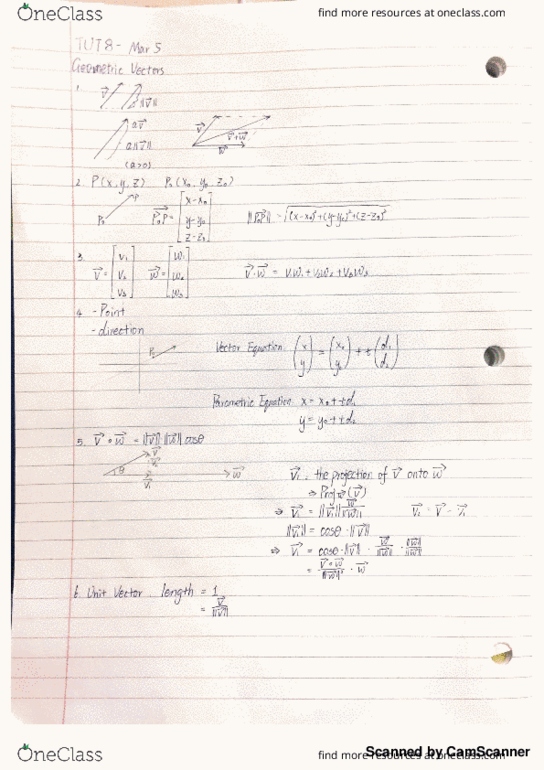 OneClass
find more resources at oneclass.com
TUT8- Mar 5
Geometric Vectors
1.
v⃗ ||v⃗||
av⃗
a||v⃗||
(a>0)
v⃗ v⃗+w⃗ w⃗
2. P(x,y,z) P₀(x₀,y₀,z₀)
P₀ P P₀P⃗ = [x-x₀ y-y₀ z-z₀] ||P₀P⃗|| = √(x-x₀)²+(y-y₀)²+(z-z₀)²
3.
v⃗ = [v₁ v₂ v₃] w⃗ = [w₁ w₂ w₃] v⃗·w⃗ = v₁w₁+v₂w₂+v₃w₃
4. - Point
- direction
P₀ Vector Equation (x y) = (x₀ y₀) + t(d₁ d₂)
Parametric Equation x = x₀+td₁
y = y₀+td₂
5. v⃗∘w⃗ = ||v⃗||·||w⃗|| cosθ
θ v⃗ v⃗₂ v⃗₁ w⃗
v⃗₁: the projection of v⃗ onto w⃗
⇒ Proj w⃗(v⃗)
⇒ v⃗₁ = ||v⃗₁|| w⃗/||w⃗|| v⃗₂ = v⃗ - v⃗₁
||v⃗₁|| = cosθ·||v⃗||
⇒ v⃗₁ = cosθ·||v⃗|| · w⃗/||w⃗|| · ||w⃗||/||w⃗||
= v⃗∘w⃗/||w⃗||² · w⃗
6. Unit Vector. length = 1
= v⃗/||v⃗||
OneClass
find more resources at oneclass.com
Scanned by CamScanner